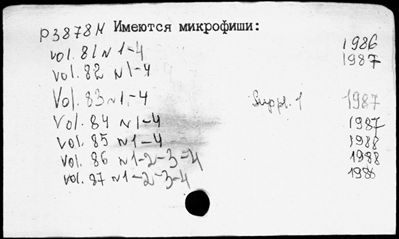 P3878N Имеются микрофиши:
vol. 81 N 1-4 1986
vol. 82 N 1-4 1987
Vol. 83 N 1-4 Suppl. 1 1987
Vol. 84 N 1-4 1987
Vol. 85 N 1-4 1988
Vol. 86 N 1-2-3-4 1988
vol. 87 N 1-2-3-4